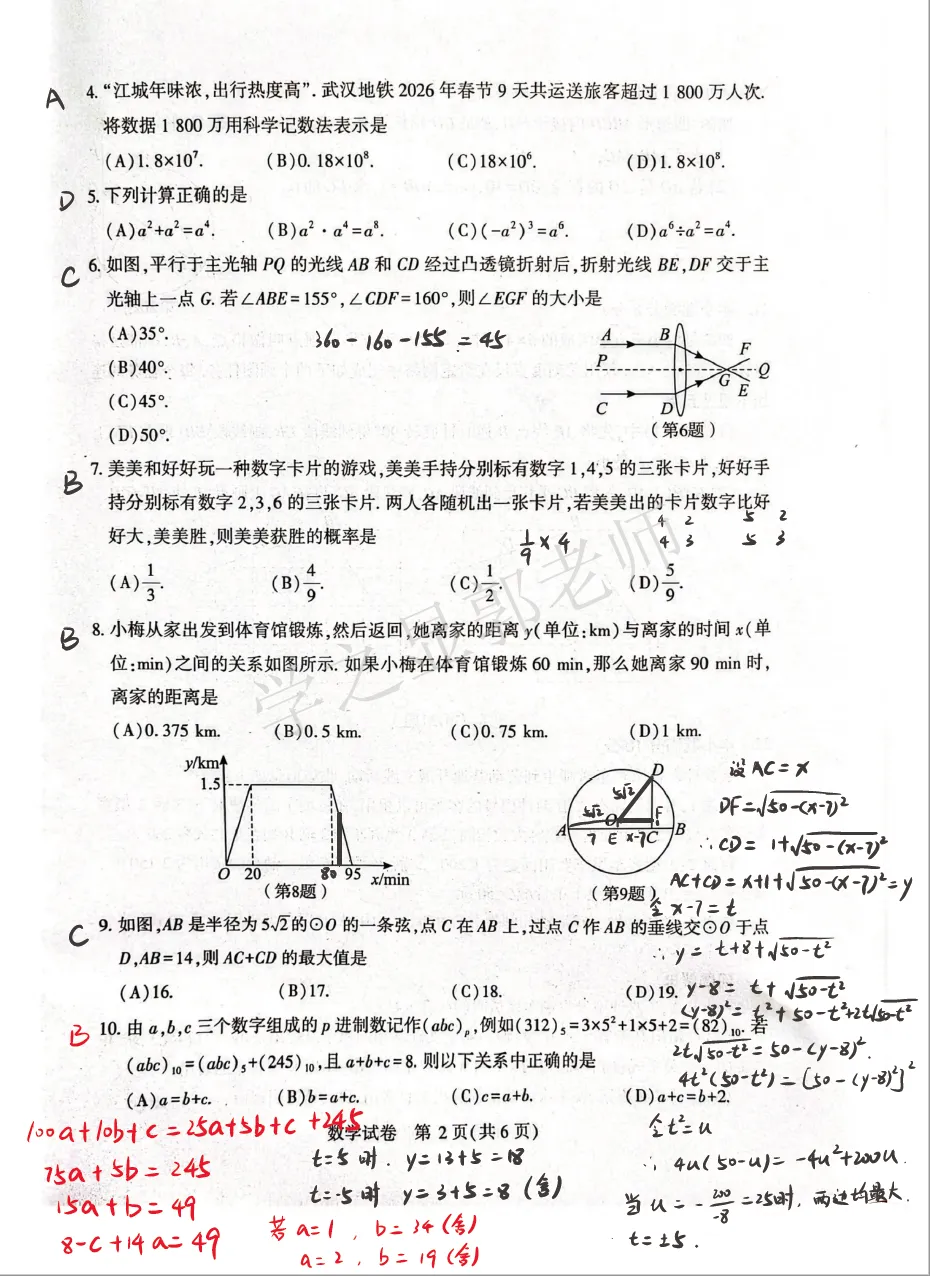 A
4. “江城年味浓,出行热度高”. 武汉地铁 2026 年春节 9 天共运送旅客超过 1 800 万人次.
将数据 1 800 万用科学记数法表示是
(A)1. 8×10⁷. (B)0. 18×10⁸. (C)18×10⁶. (D)1. 8×10⁸.
D
5. 下列计算正确的是
(A)a²+a²=a⁴. (B)a²·a⁴=a⁸. (C)(-a²)³=a⁶. (D)a⁶÷a²=a⁴.
C
6. 如图,平行于主光轴 PQ 的光线 AB 和 CD 经过凸透镜折射后,折射光线 BE,DF 交于主
光轴上一点 G. 若∠ABE=155°,∠CDF=160°,则∠EGF 的大小是
(A)35°.
360-160-155=45
(B)40°.
(C)45°.
(D)50°.
A B
P F
G Q
E
C D
(第6题)
B
7. 美美和好好玩一种数字卡片的游戏,美美手持分别标有数字 1,4,5 的三张卡片,好好手
持分别标有数字 2,3,6 的三张卡片. 两人各随机出一张卡片,若美美出的卡片数字比好
好大,美美胜,则美美获胜的概率是
1/9 × 4
4 2 5 2
4 3 5 3
(A)1/3. (B)4/9. (C)1/2. (D)5/9.
学之显郭老师
B
8. 小梅从家出发到体育馆锻炼,然后返回,她离家的距离 y(单位:km)与离家的时间 x(单
位:min)之间的关系如图所示. 如果小梅在体育馆锻炼 60 min,那么她离家 90 min 时,
离家的距离是
(A)0.375 km. (B)0.5 km. (C)0.75 km. (D)1 km.
y/km
1.5
O 20 80 95 x/min
(第8题)
D
5√2 5√2
O F
A 7 E x-7 C B
(第9题)
设 AC=x
DF=√50-(x-7)²
∴CD=1+√50-(x-7)²
AC+CD=x+1+√50-(x-7)²=y
令 x-7=t
∴ y=t+8+√50-t²
C
9. 如图,AB 是半径为 5√2的⊙O 的一条弦,点 C 在 AB 上,过点 C 作 AB 的垂线交⊙O 于点
D,AB=14,则 AC+CD 的最大值是
(A)16. (B)17. (C)18. (D)19.
y-8=t+√50-t²
(y-8)²=t²+50-t²+2t√50-t²
2t√50-t²=50-(y-8)².
4t²(50-t²)=[50-(y-8)²]²
B
10. 由 a,b,c 三个数字组成的 p 进制数记作(abc)ₚ,例如(312)₅=3×5²+1×5+2=(82)₁₀. 若
(abc)₁₀=(abc)₅+(245)₁₀,且 a+b+c=8. 则以下关系中正确的是
(A)a=b+c. (B)b=a+c. (C)c=a+b. (D)a+c=b+2.
数学试卷 第 2 页(共 6 页)
100a+10b+c=25a+5b+c+245
75a+5b=245
15a+b=49
8-c+14a=49
t=5时. y=13+5=18
t=-5时 y=3+5=8(舍)
若 a=1, b=34(舍)
a=2, b=19(舍)
令t²=u
∴ 4u(50-u)=-4u²+200u.
当 u=-200/-8=25时, 两边均最大.
t=±5.